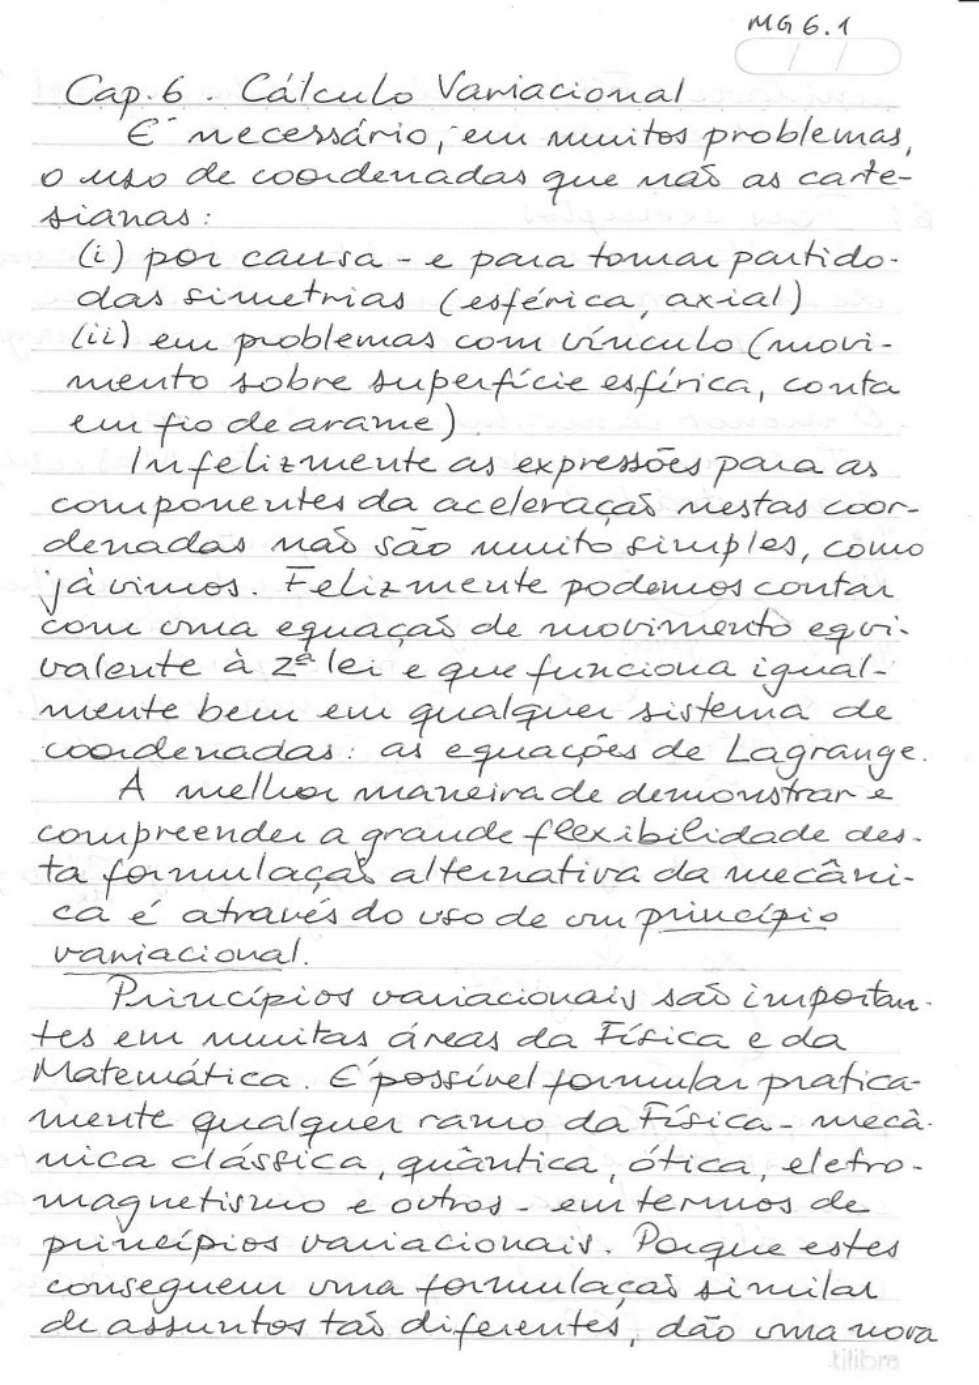 MG 6.1
Cap. 6. Cálculo Variacional
É necessário, em muitos problemas,
o uso de coordenadas que não as carte-
sianas:
(i) por causa - e para tomar partido -
das simetrias (esférica, axial)
(ii) em problemas com vínculo (movi-
mento sobre superfície esférica, conta
em fio de arame)
Infelizmente as expressões para as
componentes da aceleração nestas coor-
denadas não são muito simples, como
já vimos. Felizmente podemos contar
com uma equação de movimento equi-
valente à 2ª lei e que funciona igual-
mente bem em qualquer sistema de
coordenadas: as equações de Lagrange.
A melhor maneira de demonstrar e
compreender a grande flexibilidade des-
ta formulação alternativa da mecâni-
ca é através do uso de um princípio
variacional.
Princípios variacionais são importan-
tes em muitas áreas da Física e da
Matemática. É possível formular pratica-
mente qualquer ramo da Física - mecâ-
nica clássica, quântica, ótica, eletro-
magnetismo e outros - em termos de
princípios variacionais. Porque estes
conseguem uma formulação similar
de assuntos tão diferentes, dão uma nova
tilibra